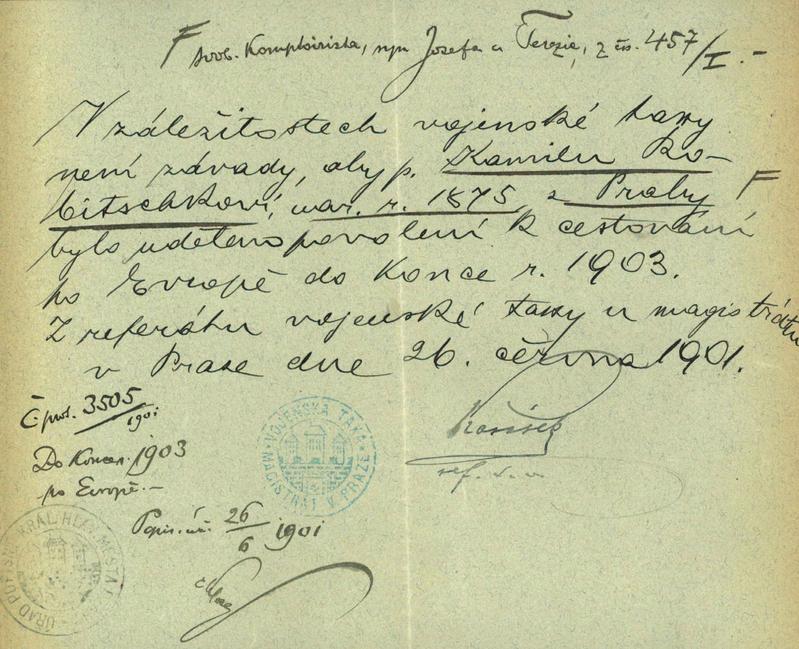 F svob. Komptoirista, syn Josefa a Terezie, z čs. 457/I. -
V záležitostech vojenské taxy
není závady, aby p. Kamilu Ro-
bitschkovi, nar. r. 1875 z Prahy F
bylo uděleno povolení k cestování
po Evropě do konce r. 1903.
Z referátu vojenské taxy u magistrátu
v Praze dne 26. června 1901.
Č. prot. 3505/1901
Do konce r. 1903
po Evropě. -
VOJENSKÁ TAXA
MAGISTRÁT V PRAZE
ref. v. t.
Popis. úř. 26/6 1901
KRÁL. HLAV. MĚSTA
ÚŘAD